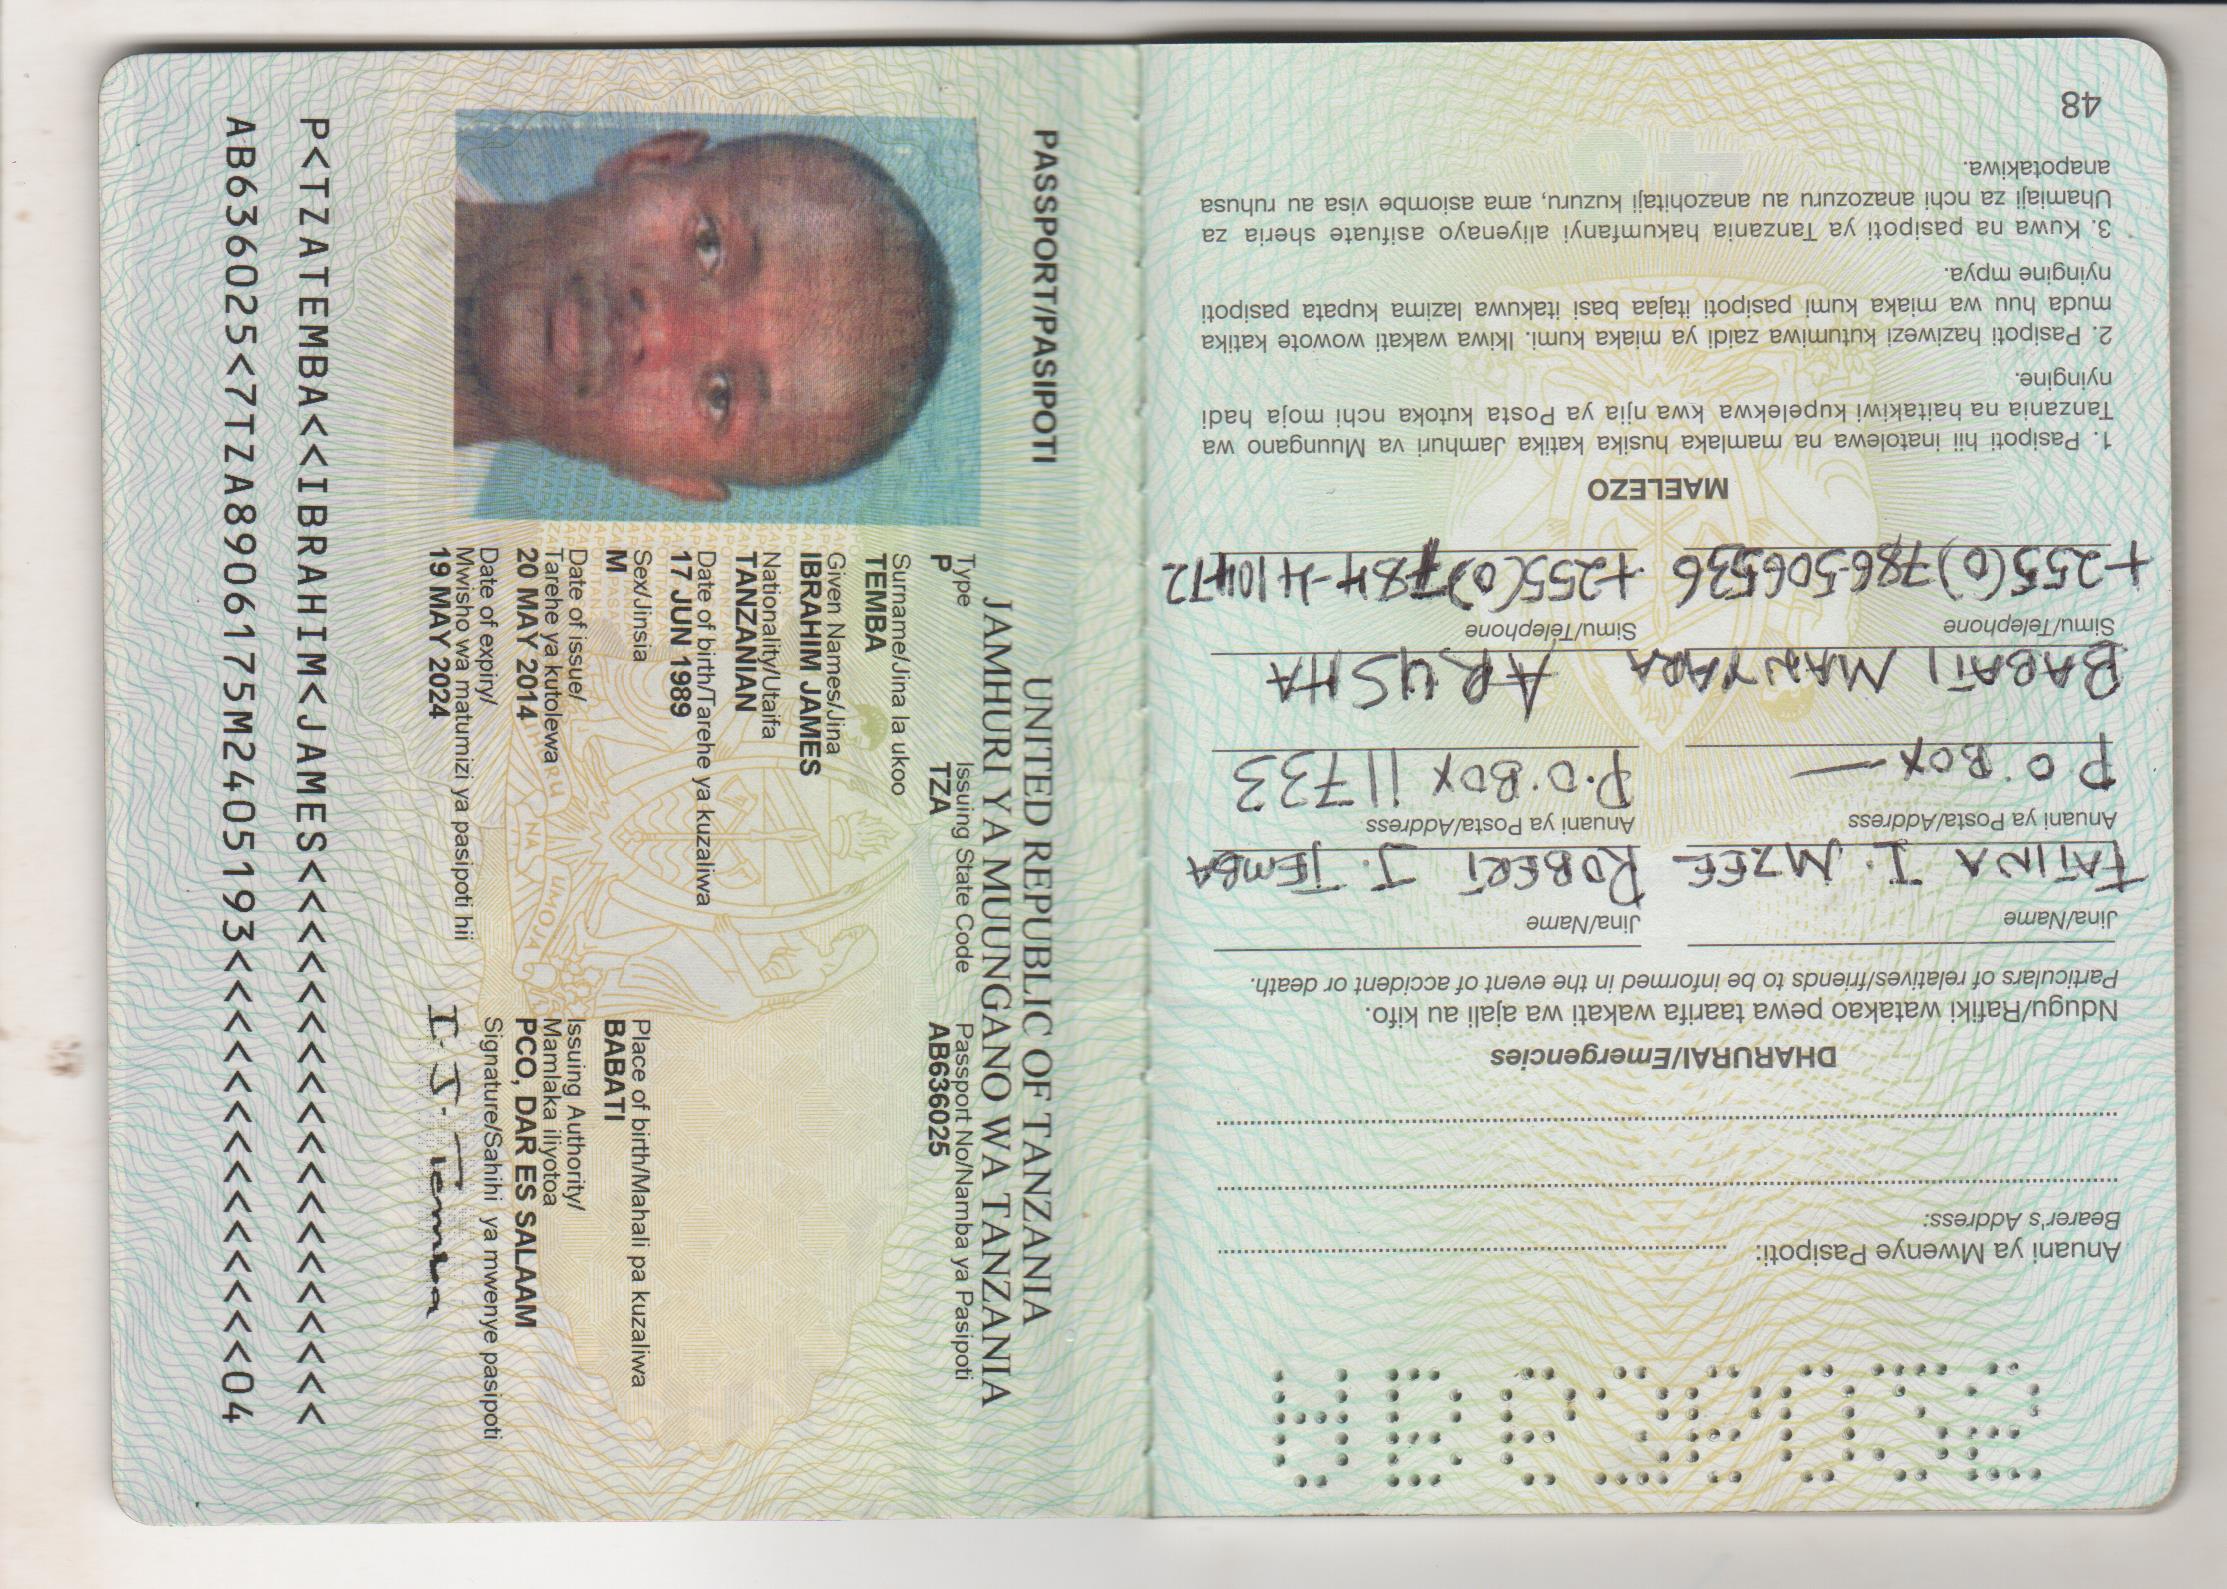 Anuani ya Mwenye Pasipoti:
Bearer's Address:
DHARURAI/Emergencies
Ndugu/Rafiki watakao pewa taarifa wakati wa ajali au kifo.
Particulars of relatives/friends to be informed in the event of accident or death.
Jina/Name Jina/Name
TATINA I. MZEE ROBERT J. TEMBA
Anuani ya Posta/Address Anuani ya Posta/Address
P.O.BOX — P.O.BOX 11733
BABATI MANYARA ARUSHA
Simu/Telephone Simu/Telephone
+255(0)786506536 +255(0)784-410472
MAELEZO
1. Pasipoti hii inatolewa na mamlaka husika katika Jamhuri va Muungano wa
Tanzania na haitakiwi kupelekwa kwa njia ya Posta kutoka nchi moja hadi
nyingine.
2. Pasipoti haziwezi kutumiwa zaidi ya miaka kumi. Ikiwa wakati wowote katika
muda huu wa miaka kumi pasipoti itajaa basi itakuwa lazima kupata pasipoti
nyingine mpya.
3. Kuwa na pasipoti ya Tanzania hakumfanyi aliyenayo asifuate sheria za
Uhamiaji za nchi anazozuru au anazohitaji kuzuru, ama asiombe visa au ruhusa
anapotakiwa.
48
PASSPORT/PASIPOTI
UNITED REPUBLIC OF TANZANIA
JAMHURI YA MUUNGANO WA TANZANIA
Type Issuing State Code Passport No/Namba ya Pasipoti
P TZA AB636025
Surname/Jina la ukoo
TEMBA
Given Names/Jina
IBRAHIM JAMES
Nationality/Utaifa
TANZANIAN
Date of birth/Tarehe ya kuzaliwa
17 JUN 1989
Sex/Jinsia Place of birth/Mahali pa kuzaliwa
M BABATI
Date of issue/ Issuing Authority/
Tarehe ya kutolewa Mamlaka iliyotoa
20 MAY 2014 PCO, DAR ES SALAAM
Date of expiry/ Signature/Sahihi ya mwenye pasipoti
Mwisho wa matumizi ya pasipoti hii
19 MAY 2024 I. J. Temba
UHURU NA UMOJA
P<TZATEMBA<<IBRAHIM<JAMES<<<<<<<<<<<<<<<<<<<
AB636025<7TZA8906175M2405193<<<<<<<<<<<<<<04